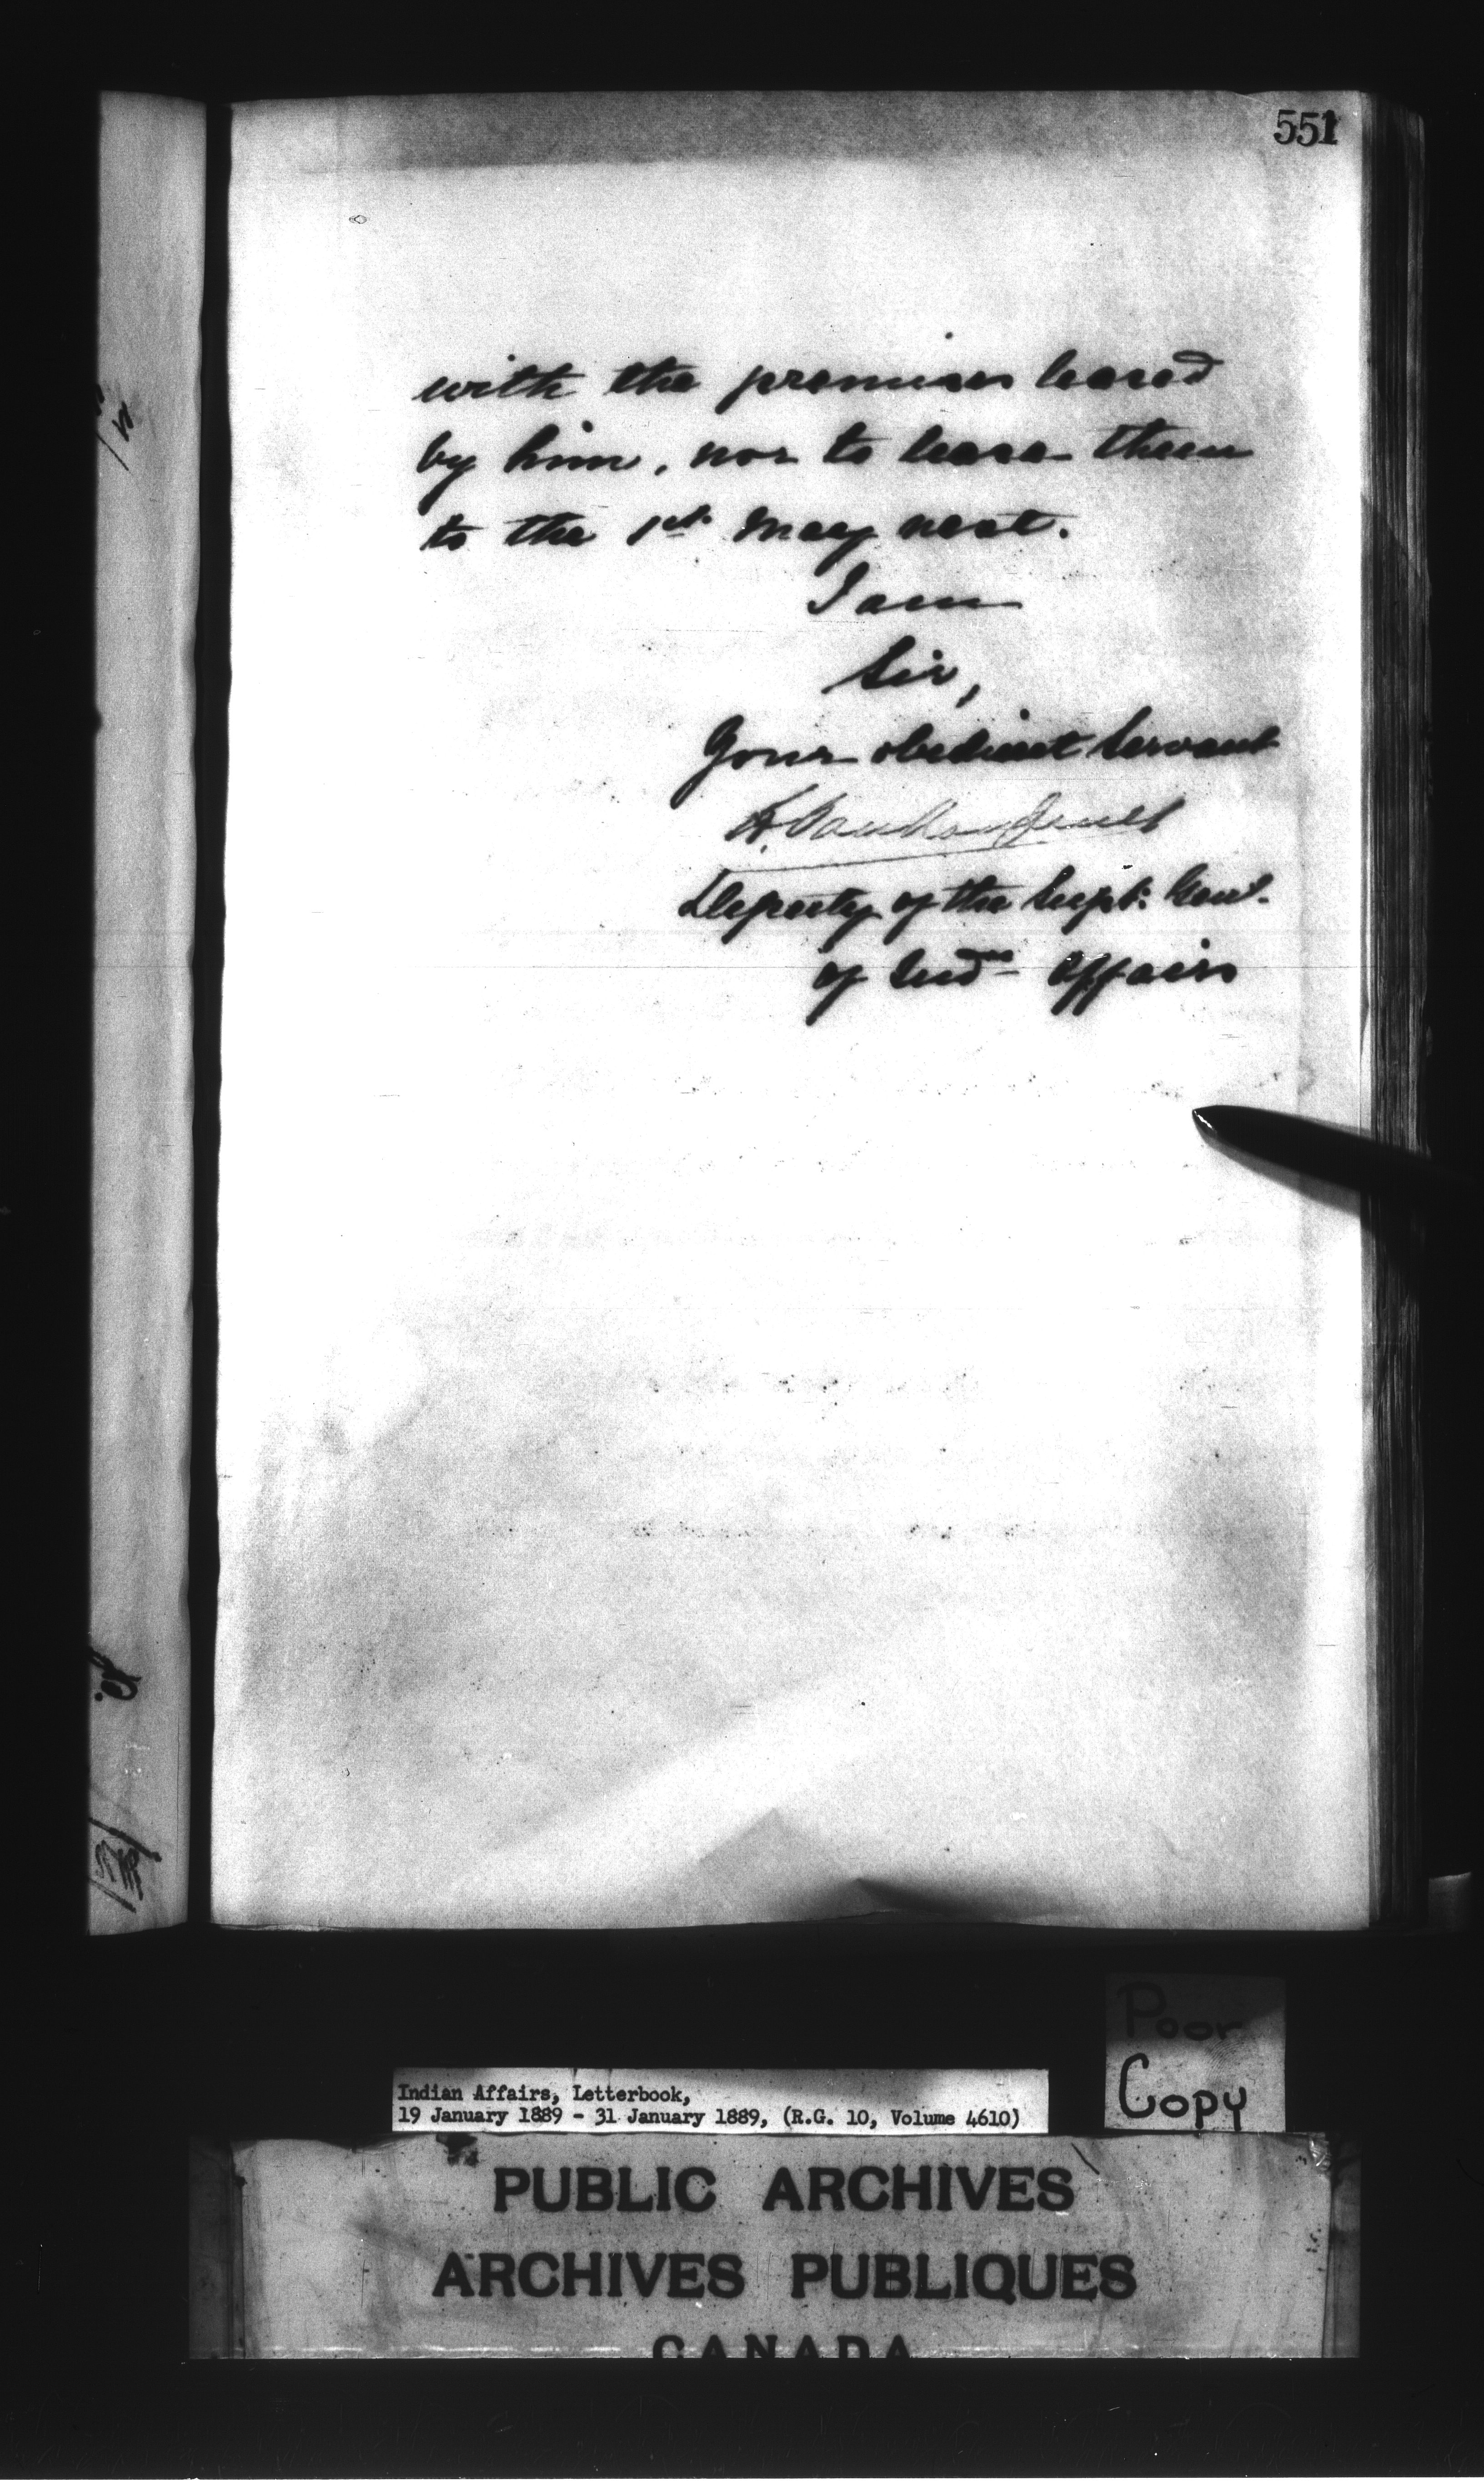 551
with the premises leased
by him, nor to lease them
to the 1st May next.
I am
Sir,
Your obedient Servant
L. Vankoughnet
Deputy of the Supt. Genl.
of Indn Affairs
Poor
Copy
Indian Affairs, Letterbook,
19 January 1889 - 31 January 1889, (R.G. 10, Volume 4610)
PUBLIC ARCHIVES
ARCHIVES PUBLIQUES
CANADA